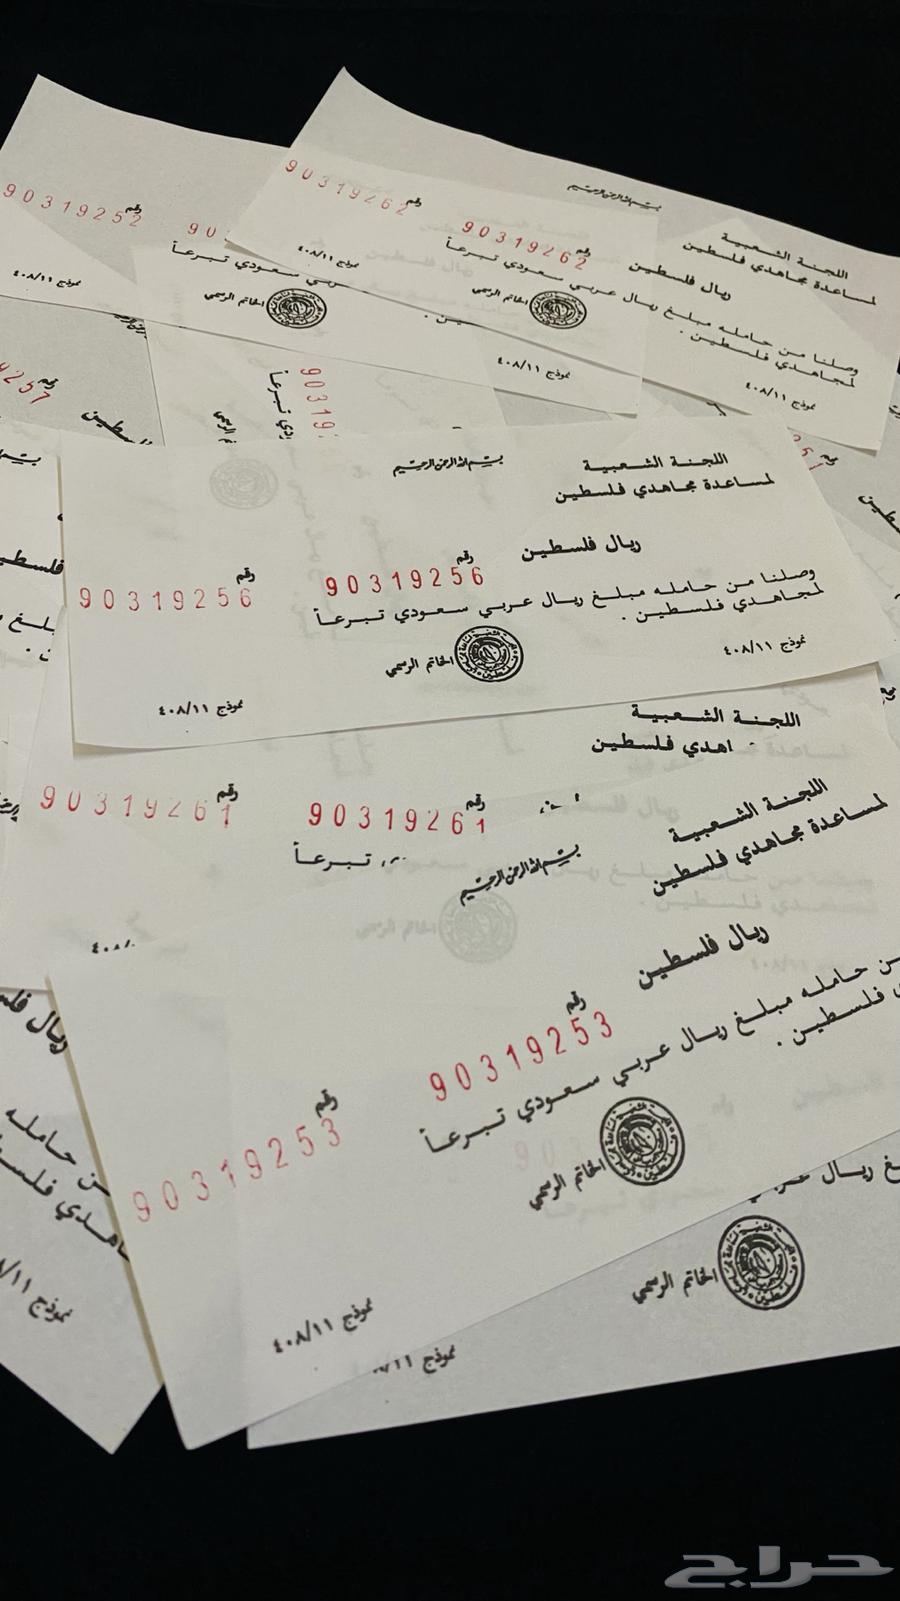 بسم الله الرحمن الرحيم
اللجنة الشعبية
لمساعدة مجاهدي فلسطين
ريال فلسطين
رقم 90319262
رقم 90319262
وصلنا من حامله مبلغ ريال عربي سعودي تبرعاً
لمجاهدي فلسطين .
الخاتم الرسمي
نموذج ٤٠٨/١١
نموذج ٤٠٨/١١
نموذج
رقم 90319252
90
سعودي تبرعاً
الخاتم الرسمي
نموذج ٤٠٨/١١
رقم
9257
فلسطين
90319
تبرعاً
بسم الله الرحمن الرحيم
اللجنة الشعبية
لمساعدة مجاهدي فلسطين
ريال فلسطين
رقم 90319256
رقم 90319256
وصلنا من حامله مبلغ ريال عربي سعودي تبرعاً
لمجاهدي فلسطين .
الخاتم الرسمي
نموذج ٤٠٨/١١
نموذج ٤٠٨/١١
اللجنة الشعبية
اهدي فلسطين
رقم 90319261
رقم 90319261
تبرعاً
بسم الله الرحمن الرحيم
اللجنة الشعبية
لمساعدة مجاهدي فلسطين
ريال فلسطين
رقم 90319253
رقم 90319253
ن حامله مبلغ ريال عربي سعودي تبرعاً
فلسطين .
الخاتم الرسمي
نموذج ٤٠٨/١١
ريال
الخاتم الرسمي
نموذج
ريال
ن حامله
نموذج
حراج